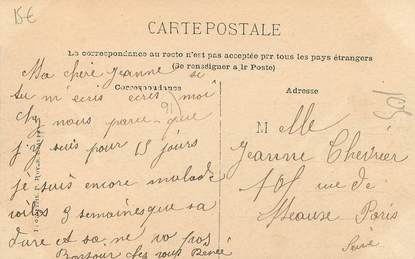 15€
CARTE POSTALE
La correspondance au recto n'est pas acceptée par tous les pays étrangers
(Se renseigner à la Poste)
Correspondance
Adresse
Ma chère Jeanne si
tu m'écris écris moi
chez nous parce que
91
j'y suis pour 15 jours
je suis encore malade
voilà 3 semaines que sa
dure et sa ne va pas
Bonjour
Renée
Melle
Jeanne Chevrier
101 rue de
Meaux Paris
Seine
105